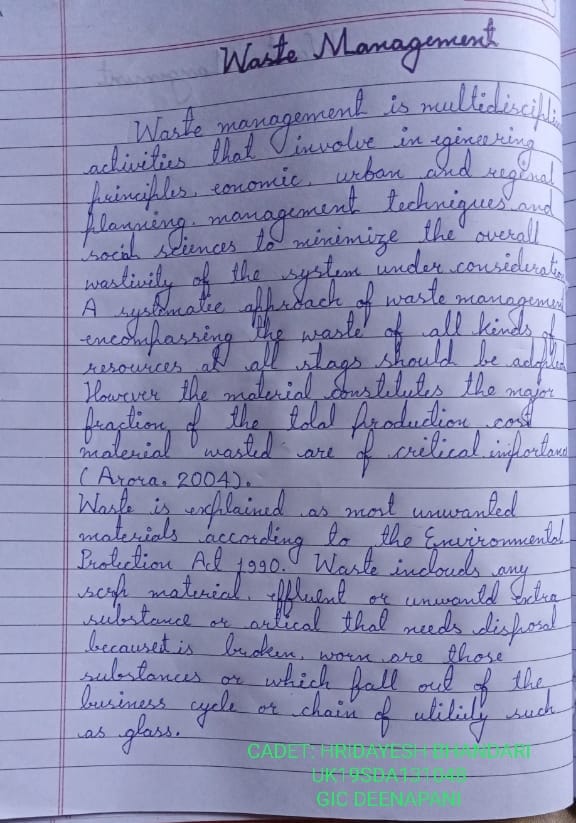 Waste Management
Waste management is multidiscipline
activities that involve in egineering
principles, economic, urban and reginal
planning, management techniques and
social sciences to minimize the overall
wastivity of the system under consideration
A systematic approach of waste management
encompassing the waste of all kinds of
resources at all stags should be adopted
However the material constitutes the major
fraction of the total production cost
material wasted are of critical importand
(Arora, 2004).
Waste is explained as most unwanted
materials according to the Environmental
Protection Act 1990. Waste includs any
scrap material, effluent or unwantd extra
substance or artical that needs disposal
because it is broken, worn are those
substances or which fall out of the
business cycle or chain of utility such
as glass.
CADET: HRIDAYESH BHANDARI
UK19SDA131048
GIC DEENAPANI